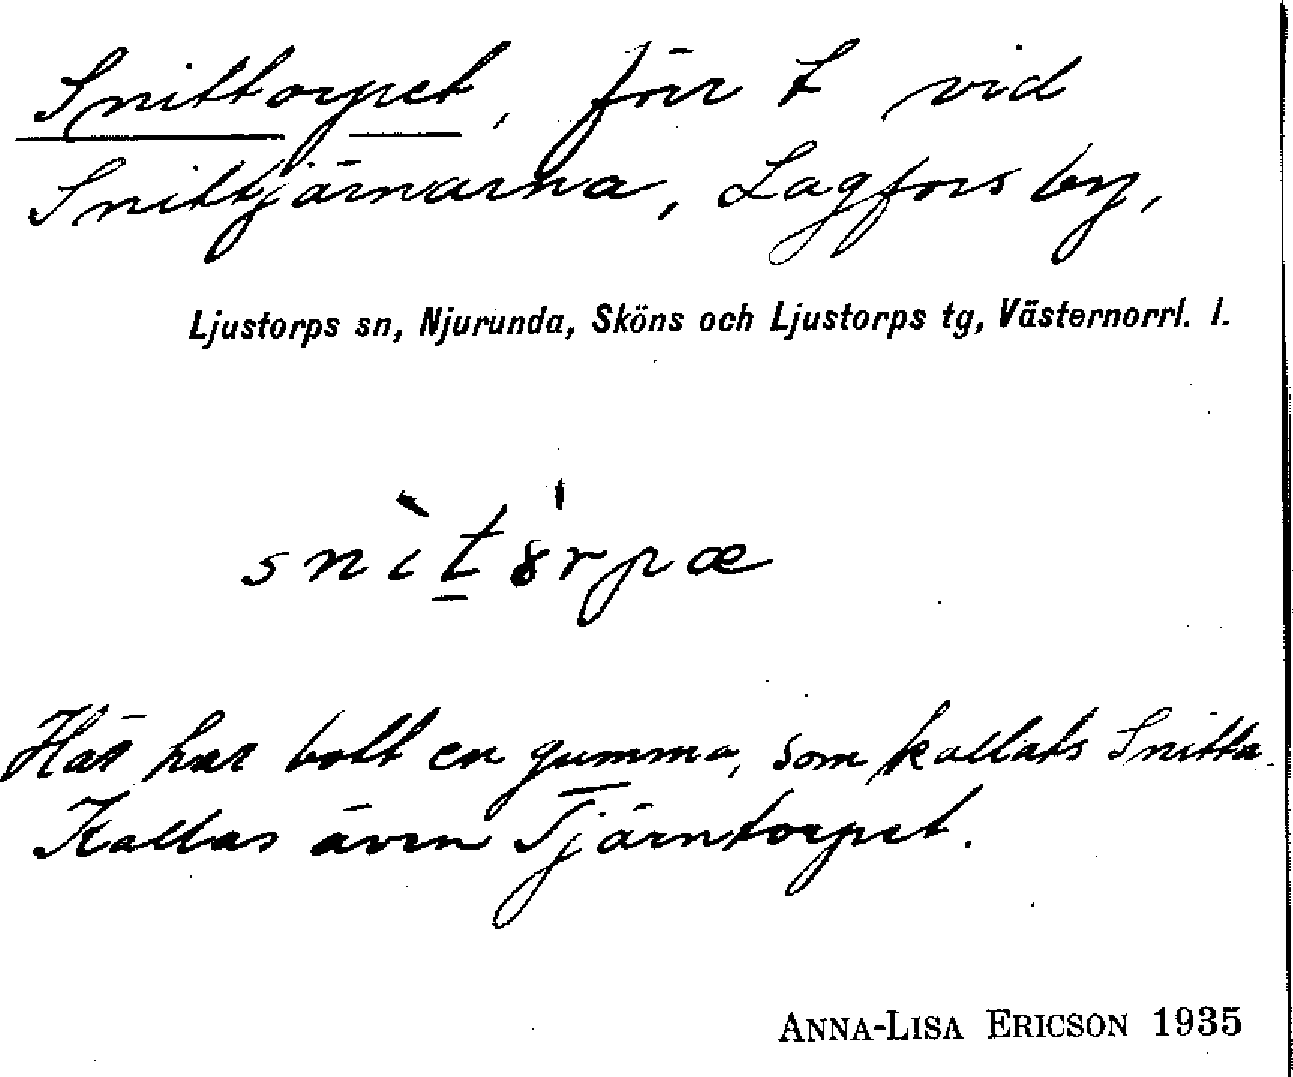 Snittorpet, förr t vid
Snittjärnarna, Lagfors by,
Ljustorps sn, Njurunda, Sköns och Ljustorps tg, Västernorrl. l.
snìt̠ȯ́rpæ
Här har bott en gumma, som kallats Snitta.
Kallas även Tjärntorpet.
ANNA-LISA ERICSON 1935